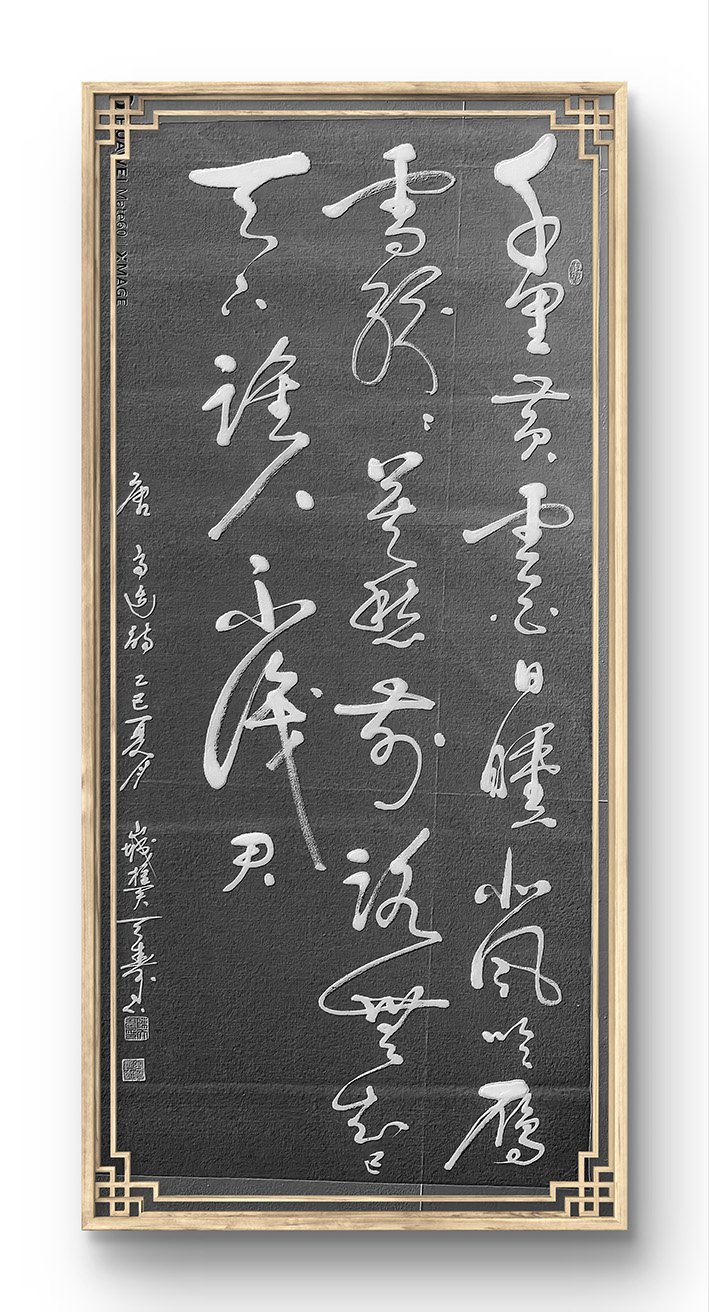 千里黄雲白日曛北風吹雁
雪紛〻莫愁前路無知己
天下誰人不識君
唐 高適詩 乙巳夏月
HUAWEI Mate60 XMAGE